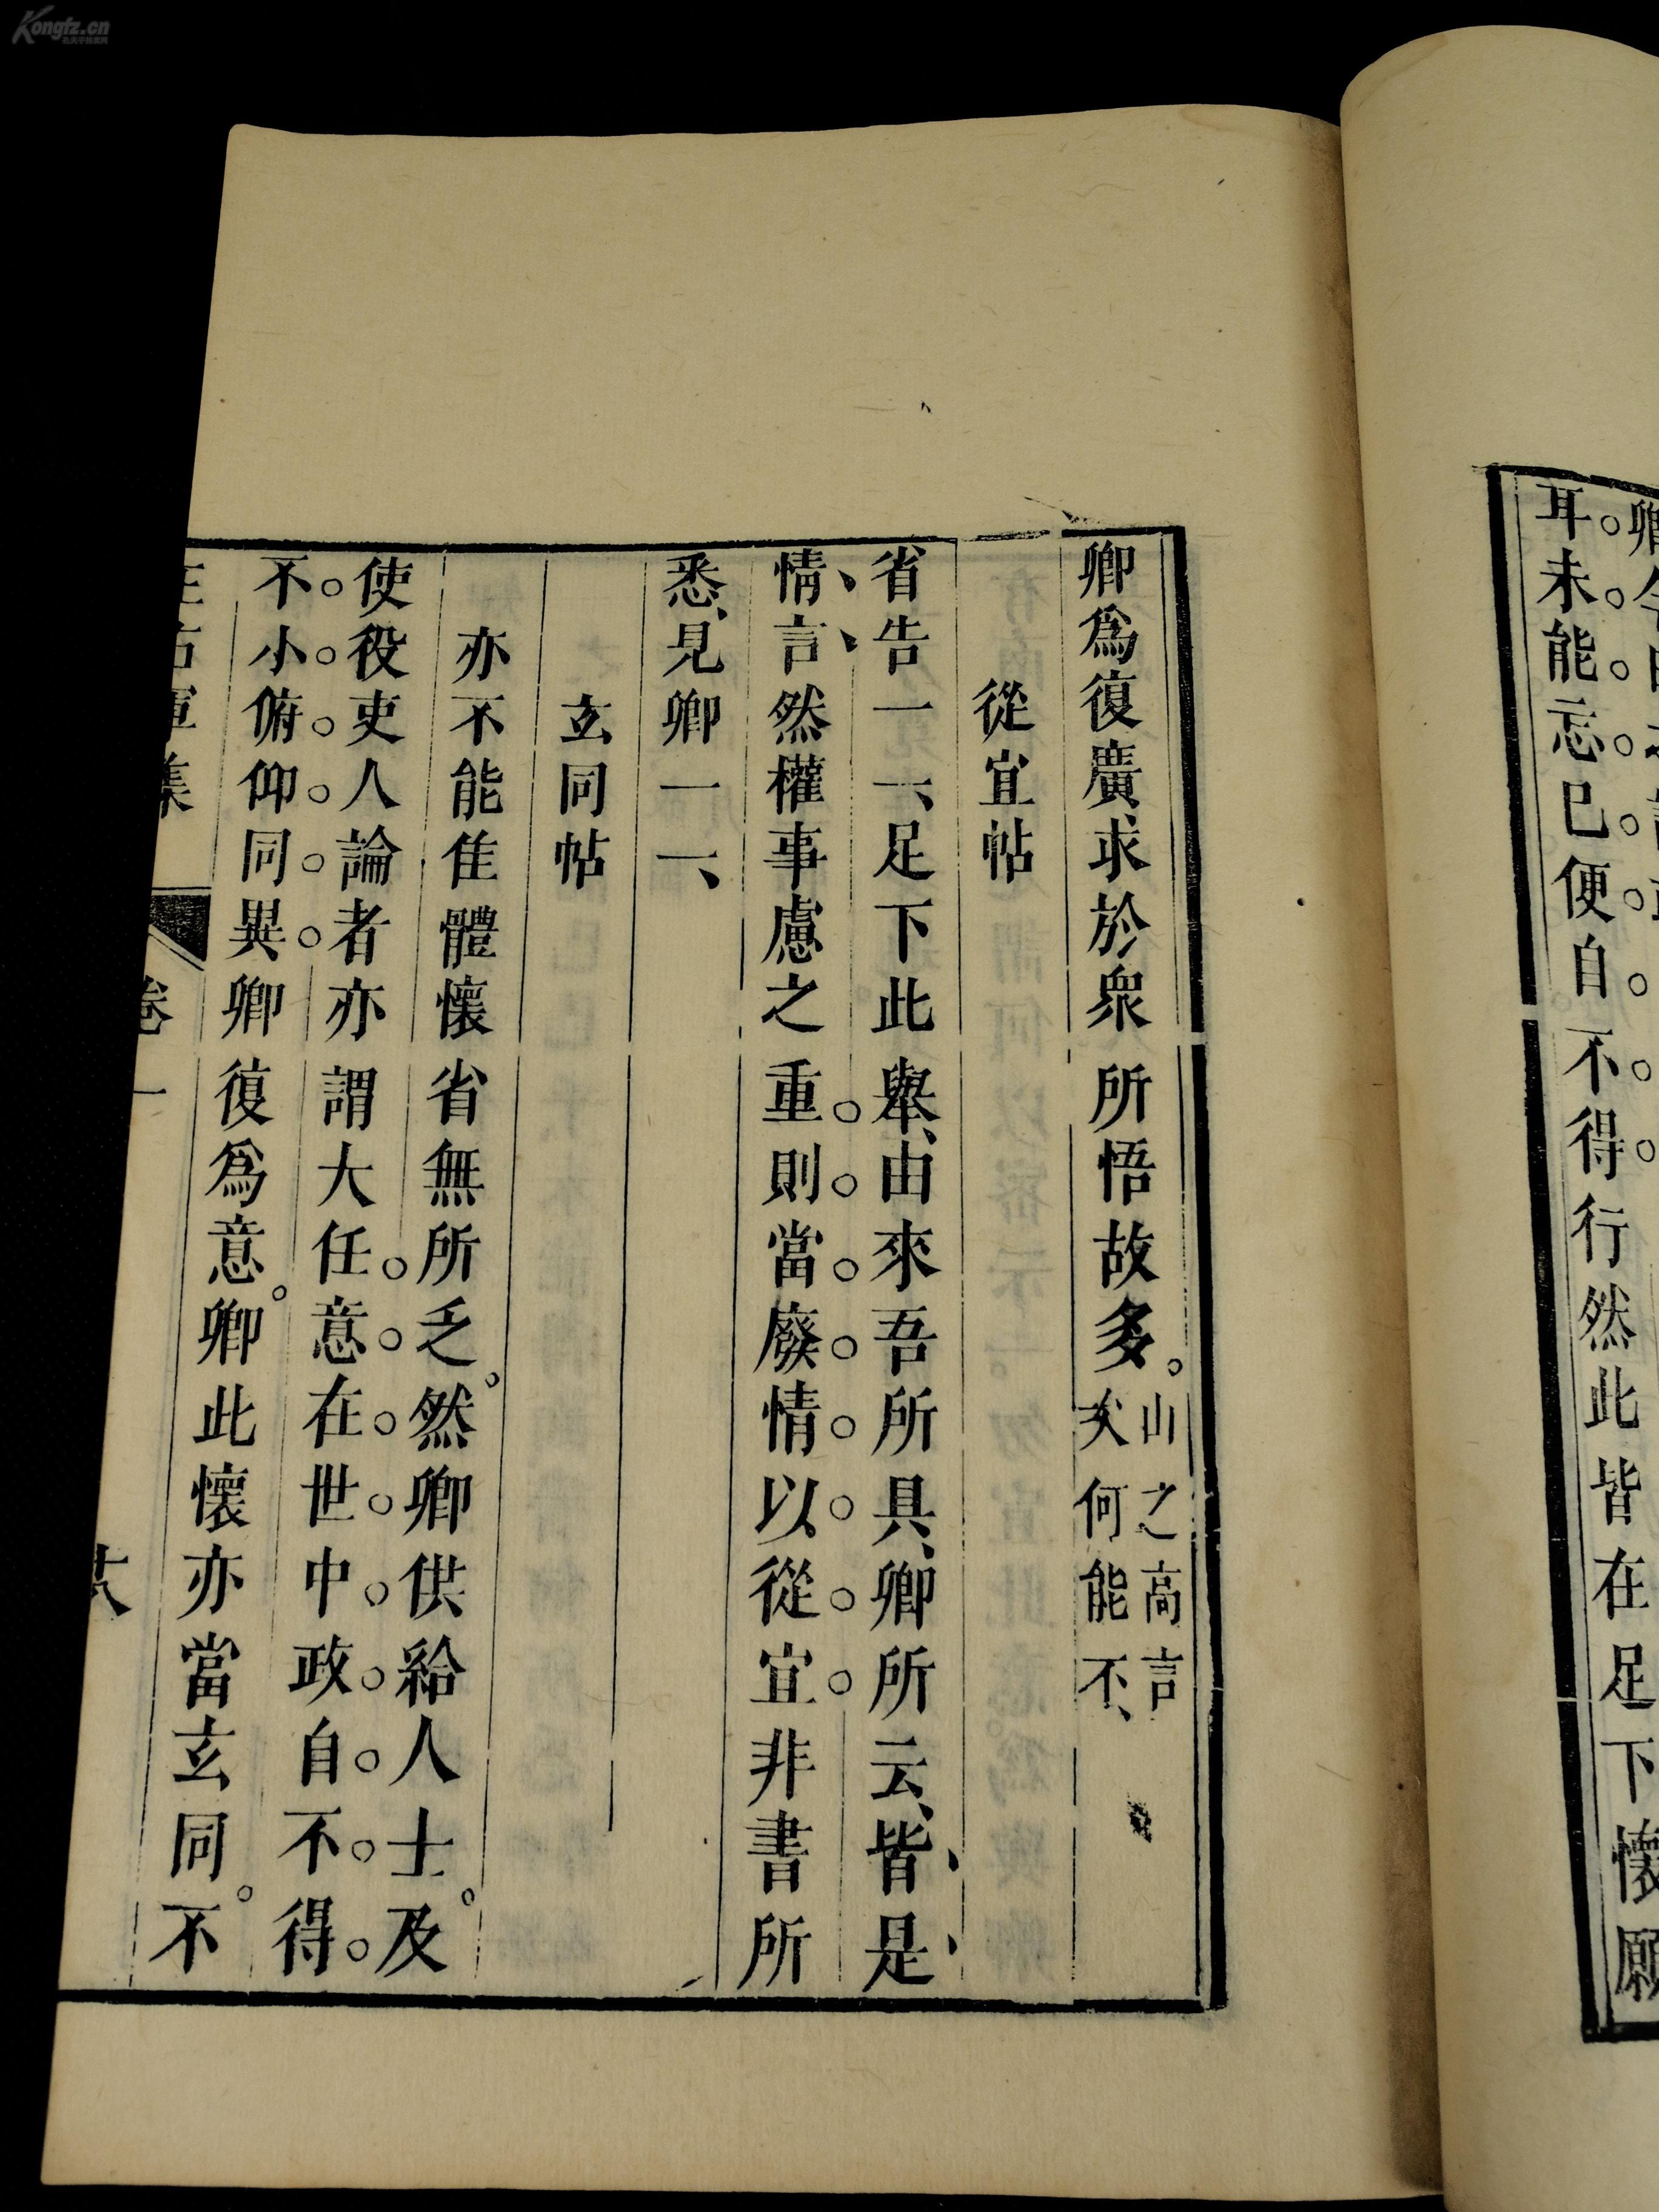 Kongfz.cn
孔夫子旧书网
耳未能忘已便自不得行然此皆在足下懷願
卿爲復廣求於衆所悟故多山之高言
㕥何能不
從宜帖
省告一一足下此舉由來吾所具卿所云皆是
情言然權事慮之重則當廢情以從宜非書所
悉見卿一一
玄同帖
亦不能佳體懷省無所乏然卿供給人士及
使役吏人論者亦謂大任意在世中政自不得
不小俯仰同異卿復爲意卿此懷亦當玄同不
王右軍集 卷一 十六